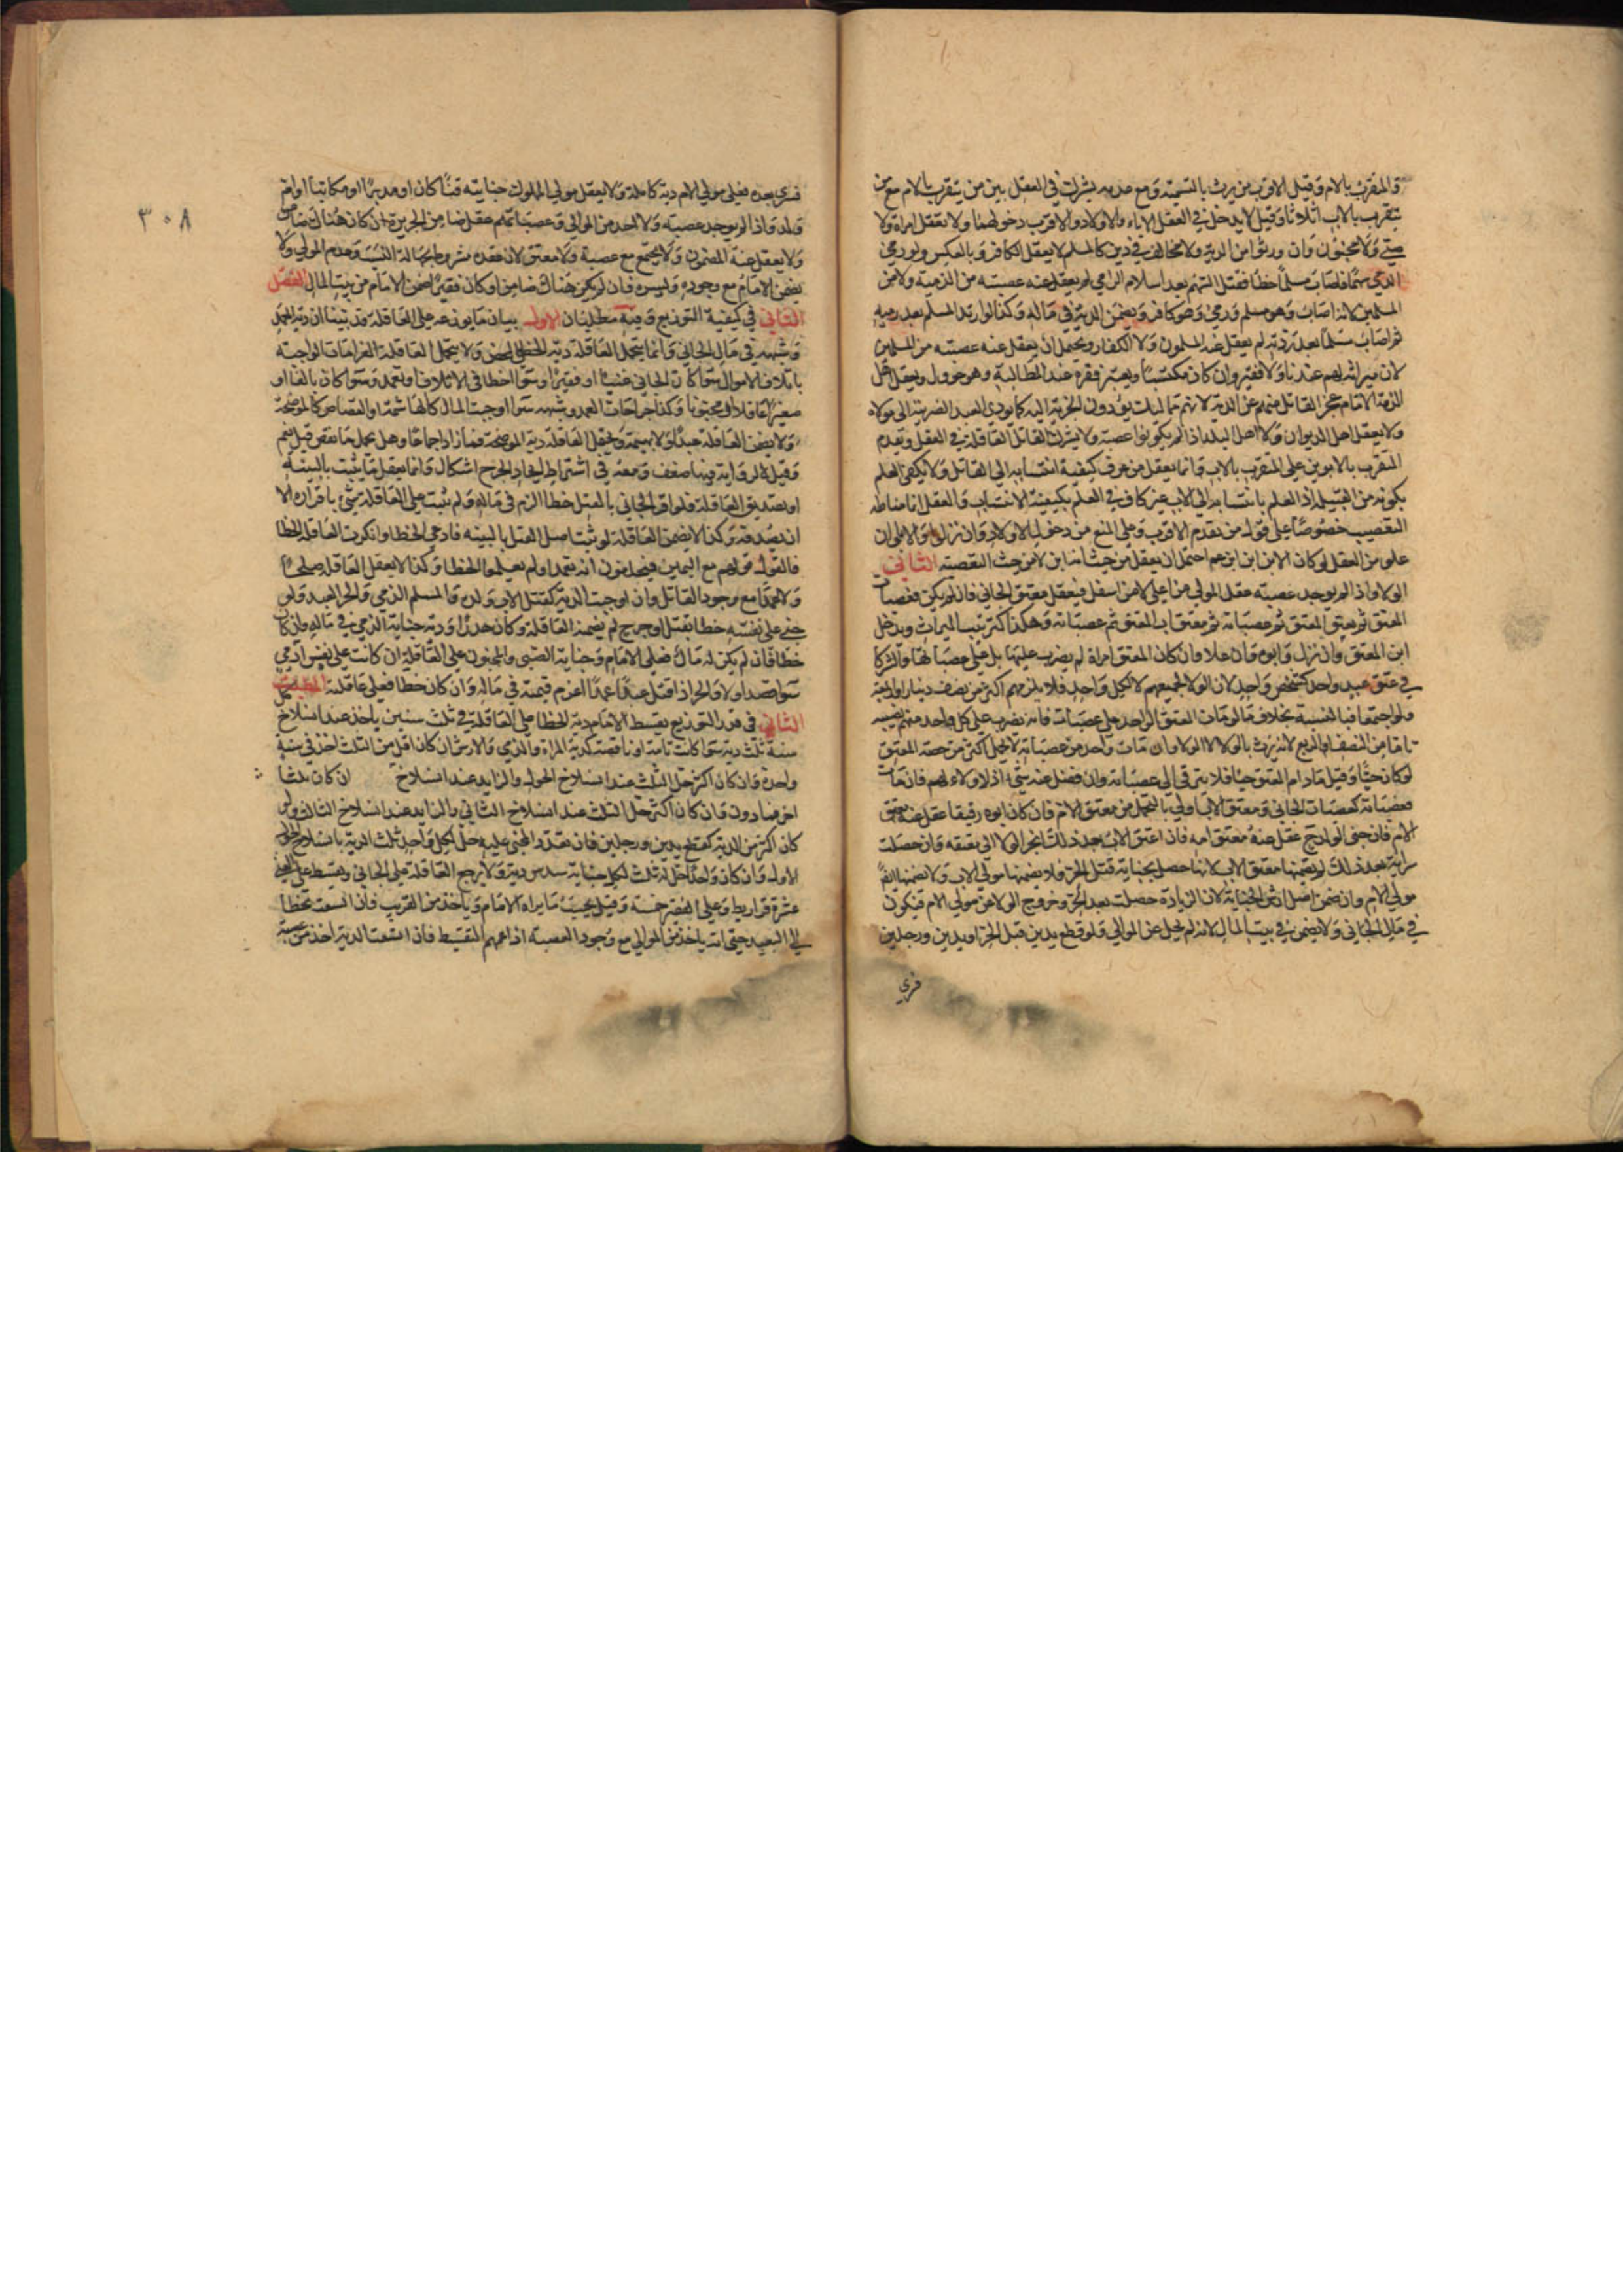 والمتقرب بالام وقيل الاقرب ممن يرث بالتسمية ومع عدمه يشرك في العقل بين من يتقرب بالام مع من
يتقرب بالاب اثلاثا وقيل لا يدخل في العقل الاباء والاولاد والاقرب دخولهما ولا تعقل امراة ولا
صبي ولا مجنون وان ورثوا من الدية ولا مخالف في دين كالمسلم لا يعقل الكافر وبالعكس ولو رمى
الذمي سهما فاصاب مسلما خطأ فقتل السهم بعد اسلام الرامي لم يعقل عنه عصبته من الذمية ولا من
المسلمين لانه اصاب وهو مسلم ورمى وهو كافر ويضمن الدية في ماله وكذا لو ارتد المسلم بعد رميه
ثم اصاب مسلما بعد ردته لم يعقل عنه المسلمون ولا الكفار ويحتمل ان يعقل عنه عصبته من المسلمين
لان ميراثه لهم عندنا ولا فقير وان كان مكتسبا ويعتبر فقره عند المطالبة وهو حؤول ويعقل اهل
الذمة الامام مع عجز القاتل منهم عن الدية لانهم مماليك يؤدون الجزية اليه كما يؤدي العبد الضريبة الى مولاه
ولا يعقل اهل الديوان ولا اهل البلد اذا لم يكونوا عصبة ولا يشرك القاتل العاقلة في العقل ويقدم
المتقرب بالابوين على المتقرب بالاب وانما يعقل من عرف كيفية انتسابه الى القاتل ولا يكفي العلم
بكونه من القبيلة اذ العلم بانتسابه الى الاب غير كاف في العلم بكيفية الانتساب والعقل انما مناطه
التعصيب خصوصا على قول من يقدم الاقرب وعلى المنع من دخول الاولاد وان نزلوا والاباء وان
علو من العقل لو كان الابن ابن ابن عم احتمل ان يعقل من حيث انه ابن لا من حيث التعصيب الثاني
الولا واذا لم يوجد عصبة عقل المولى من اعلى لا من اسفل فيعقل معتق الجاني فان لم يكن فعصبات
المعتق ثم معتق المعتق ثم عصباته ثم معتق اب المعتق ثم عصباته وهكذا كترتيب الميراث ويدخل
ابن المعتق وان نزل وابوه وان علا وان كان المعتق امراة لم يضرب عليها بل على عصباتها ولو اشركا
في عتق عبد واحد كشخص واحد لان الولا لجميعهم لا لكل واحد فلا يلزمهم اكثر من نصف دينار او ربعه
ولو اجتمعا فبالنسبة بخلاف ما لو مات المعتق الواحد على عصبات فانه يضرب على كل واحد منهم نصيبه
تاما من النصف او الربع لانه يرث بالولا لا الولا وان مات واحد من عصباته لا يحمل اكثر من حصة المعتق
لو كان حيا وقيل مادام المعتق حيا فلا يترقى الى عصباته وان فضل عنه شيء اذ لا ولاء لهم فان مات
فعصباته كعصبات الجاني ومعتق الاب اولى بالتحمل من معتق الام فان كان ابوه رقيقا عقل عنه معتق
الام فان جنى الولد ح عقل عنه معتق امه فان اعتق الاب بعد ذلك انجر الولا الى معتقه وان حصلت
سراية بعد ذلك لم يضمنها معتق الاب لانها حصل بجناية قبل الجر فلا يضمنها مولى الاب ولا يضمنها ايضا
مولى الام وان ضمن اصل ارش الجناية لان الزيادة حصلت بعد الجر وخروج الولا عن مولى الام فيكون
في مال الجاني ولا يضمن في بيت المال لانه لم يخل عن الموالي ولو قطع يدين قبل الجر او يدين ورجلين
فسرى
٣٠٨
فسرى بعده فعلى مولى الام دية كاملة ولا يعقل مولى المملوك جنايته قنا كان او مدبرا او مكاتبا او ام
ولد واذا لم يوجد عصبة ولا احد من الموالي وعصباتهم عقل ضامن الجريرة ان كان هناك ضامن
ولا يعقل عنه المضمون ولا يجتمع مع عصبة ولا معتق لان عقده مشروط بجهالة النسب وعدم المولى ولا
يضمن الامام مع وجوده ويسره فان لم يكن هناك ضامن او كان فقيرا ضمن الامام من بيت المال الفصل
الثاني في كيفية التوزيع وفيه مطلبان الاول بيان ما يوزع على العاقلة قد بينا ان دية العمد
وشبهه في مال الجاني وانما يتحمل العاقلة دية الخطأ المحض ولا يتحمل العاقلة الغرامات الواجبة
باتلاف الاموال سوا كان الجاني غنيا او فقيرا وسوا اخطا في الاتلاف او تعمد وسوا كان بالغا او
صغيرا عاقلا او مجنونا وكذا جراحات العمد وشبهه سوا اوجبت المال كالهاشمة او القصاص كالموضحة
ولا يضمن العاقلة عبدا ولا بهيمة ويحمل العاقلة دية الموضحة فما زاد اجماعا وهل يحمل ما نقص قيل نعم
وقيل لا لرواية فيها ضعف ومعه في اشتراط اتحاد الجرح اشكال وانما يعقل ما يثبت بالبينة
او تصديق العاقلة فلو اقر الجاني بالقتل خطا الزم في ماله ولم يثبت على العاقلة شيء باقراره الا
ان يصدقه وكذا لا يضمن العاقلة لو ثبت اصل القتل بالبينه فادعى الخطا وانكرت العاقلة الخطا
فالقول قولهم مع اليمين فيحلفون انه تعمد او لم يعلموا الخطا وكذا لا يعقل العاقلة صلحا
ولا عمدا مع وجود القاتل وان اوجبت الدية كقتل الاب ولده والمسلم الذمي والحر العبد ولو
جنى على نفسه خطا بقتل او جرح لم يضمنه العاقلة وكان هدرا ودية جناية الذمي في ماله وان كان
خطا فان لم يكن له مال فعلى الامام وجناية الصبي والمجنون على العاقلة ان كانت على نفس ادمي
سوا قصدا اولا والحر اذا قتل عبدا عمدا اغرم قيمته في ماله وان كان خطا فعلى عاقلته المطلب
الثاني في قدر التوزيع يقسط الامام دية الخطا على العاقلة في ثلث سنين ياخذ عند انسلاخ كل
سنة ثلث دية سوا كانت تامة او ناقصة كدية المراة والذمي والارش ان كان اقل من الثلث اخذ في سنة
واحدة وان كان اكثر حل الثلث عند انسلاخ الحول والزايد عند انسلاخ ان كان ثلثا
اخر فما دون وان كان اكثر حل الثلث عند انسلاخ الثاني والزايد عند انسلاخ الثالث ولو
كان اكثر من الدية كقطع يدين ورجلين فان تعدد المجني عليه حل لكل واحد ثلث الدية بانسلاخ الحول
الاول وان كان واحدا حل له ثلث لكل جناية سدس دية ولا يرجع العاقلة على الجاني ويقسط على الغني
عشرة قراريط وعلى الفقير خمسة وقيل بحسب ما يراه الامام وياخذ من القريب فان اتسعت تخطا
الى البعيد حتى انه ياخذ من الموالي مع وجود العصبة اذا عمهم التقسيط فان اتسعت الدية اخذ من عصبة